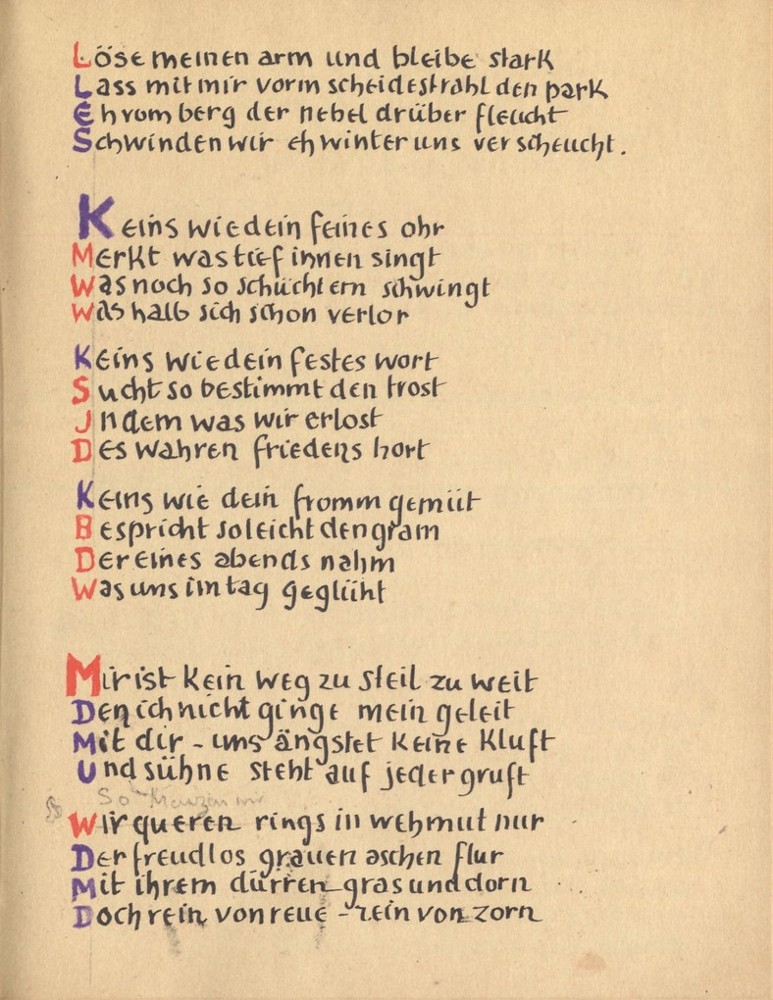 Löse meinen arm und bleibe stark
Lass mit mir vorm scheidestrahl den park
Eh vom berg der nebel drüber fleucht
Schwinden wir eh winter uns verscheucht.
Keins wie dein feines ohr
Merkt was tief innen singt
Was noch so schüchtern schwingt
Was halb sich schon verlor
Keins wie dein festes wort
Sucht so bestimmt den trost
In dem was wir erlost
Des wahren friedens hort
Keins wie dein fromm gemüt
Bespricht so leicht den gram
Der eines abends nahm
Was uns im tag geglüht
Mir ist kein weg zu steil zu weit
Den ich nicht ginge mein geleit
Mit dir – uns ängstet keine kluft
Und sühne steht auf jeder gruft
So kreuzen wir
Wir queren rings in wehmut nur
Der freudlos grauen aschen flur
Mit ihrem dürren gras und dorn
Doch rein von reue – rein von zorn